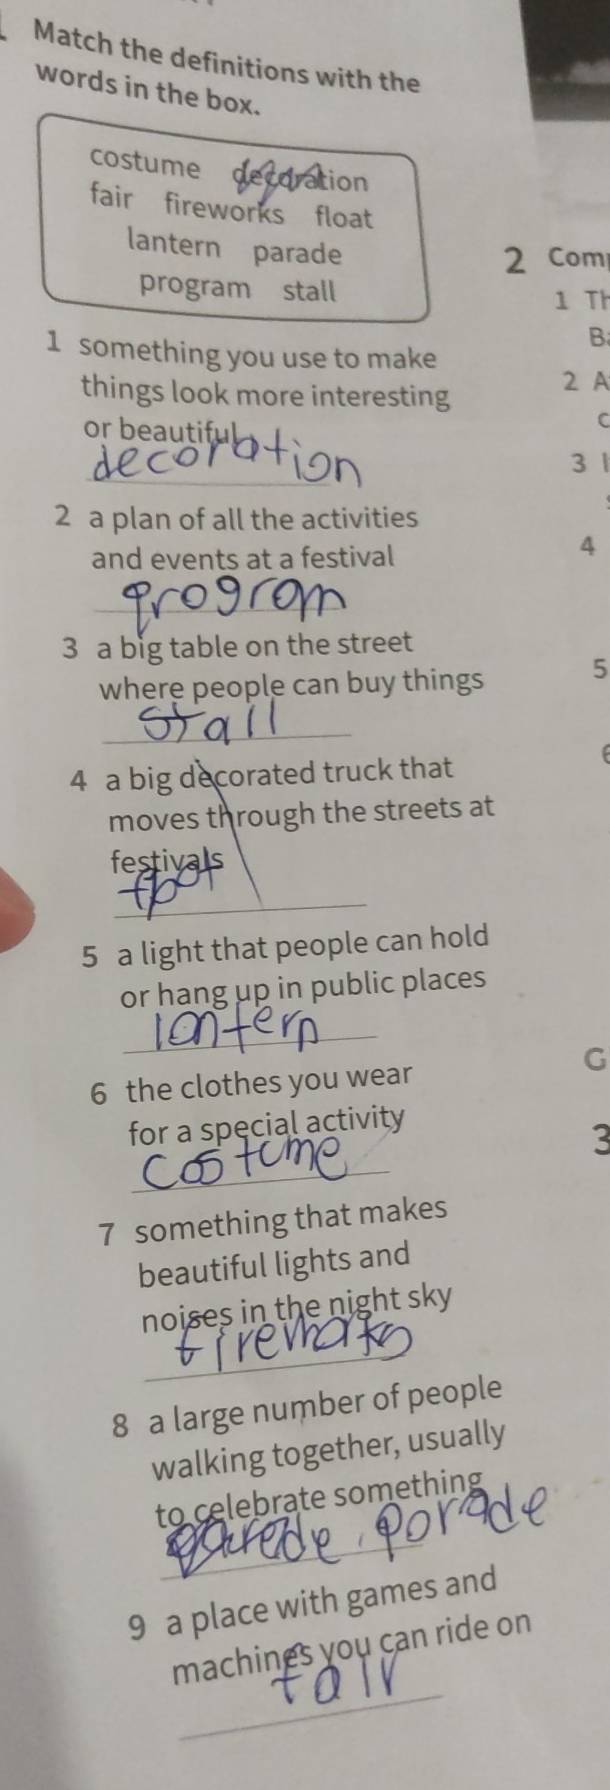 Match the definitions with the
words in the box.
costume decoration
fair fireworks float
lantern parade
program stall
1 something you use to make
things look more interesting
or beautiful
decoration
2 a plan of all the activities
and events at a festival
program
3 a big table on the street
where people can buy things
stall
4 a big decorated truck that
moves through the streets at
festivals
5 a light that people can hold
or hang up in public places
lantern
6 the clothes you wear
for a special activity
costume
7 something that makes
beautiful lights and
noises in the night sky
8 a large number of people
walking together, usually
to celebrate something
parede, parade
9 a place with games and
machines you can ride on
fair
2 Com
1 Th
B
2 A
C
3 I
4
5
6
G
3